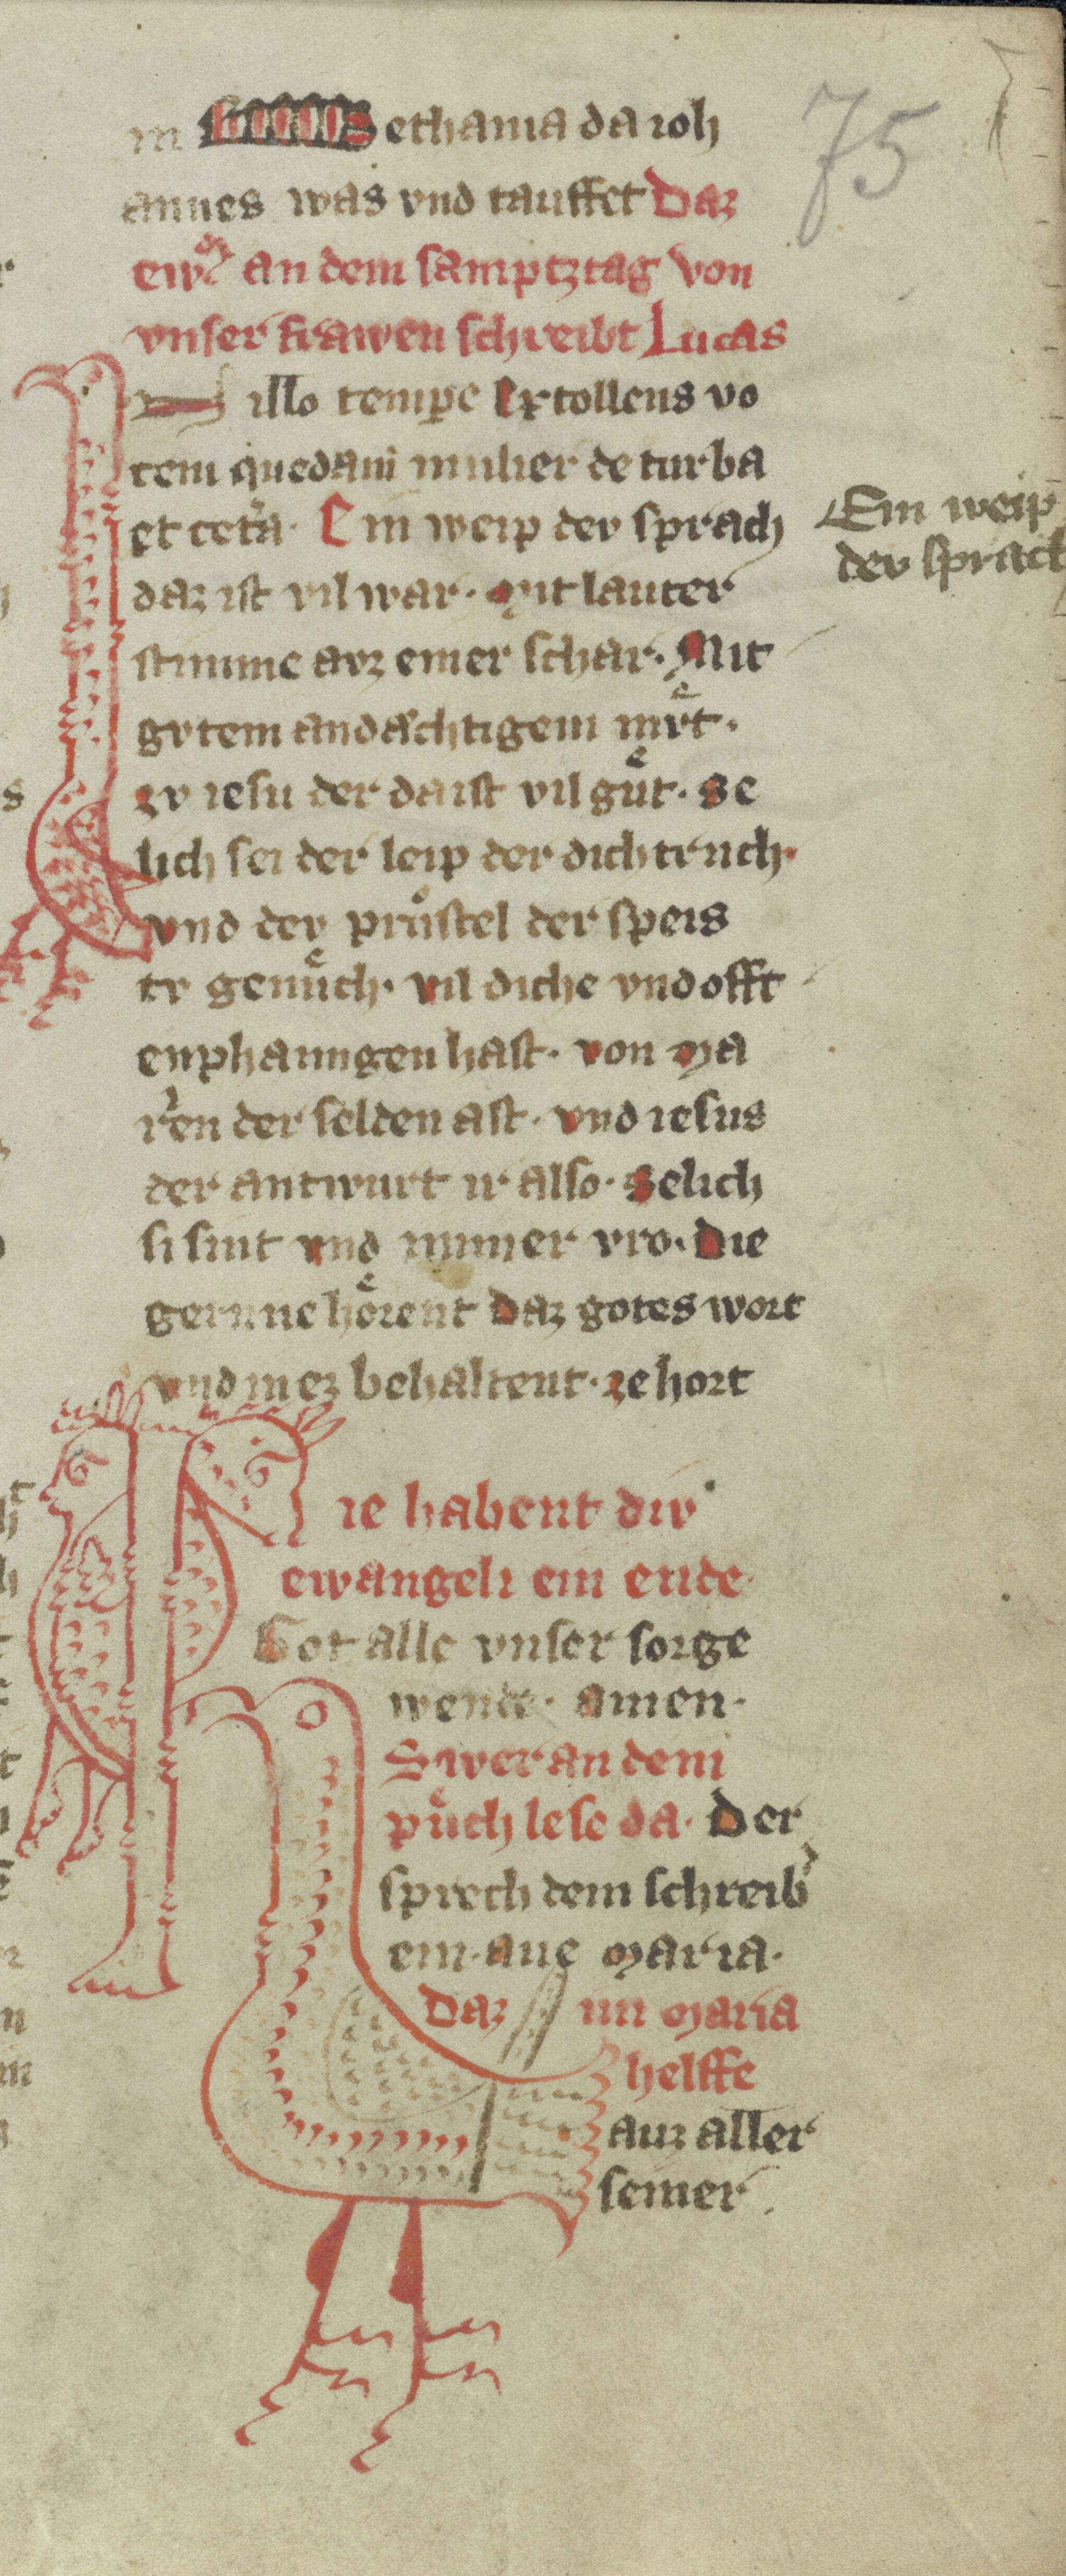 75
in Bethania da ioh
annes was vnd tauffet Daz
ew͛ an dem samptztag von
vnser frawen schreibt Lucas
illo temꝑe Extollens vo
cem quedam mulier de turba
et cet͛a· Ein weip der sprach
daz ist vil war· Mit lauter
stimme avz einer schar· Mit
gvtem andæchtigem mvͤt·
zv iesu der da ist vil guͤt· Se
lich sei der leip der dich trůch·
vnd der prüstel der speis
er genuͤch· vil diche vnd offt
enphanngen hast· von Ma
r͛en der selden ast· vnd iesus
der antwurt ir also· Selich
si sint vnd immer vro· Die
gernne hoͤrent daz gotes wort
vnd in ez behaltent· ze hort
ie habent div
ewangeli ein ende·
Got alle vnser sorge
wende· amen·
Swer an dem
puͤch lese da· Der
sprech dem schreib͛
ein· aue Maria·
Daz im Maria
helffe
auz aller
seiner
Ein weip
der sprach